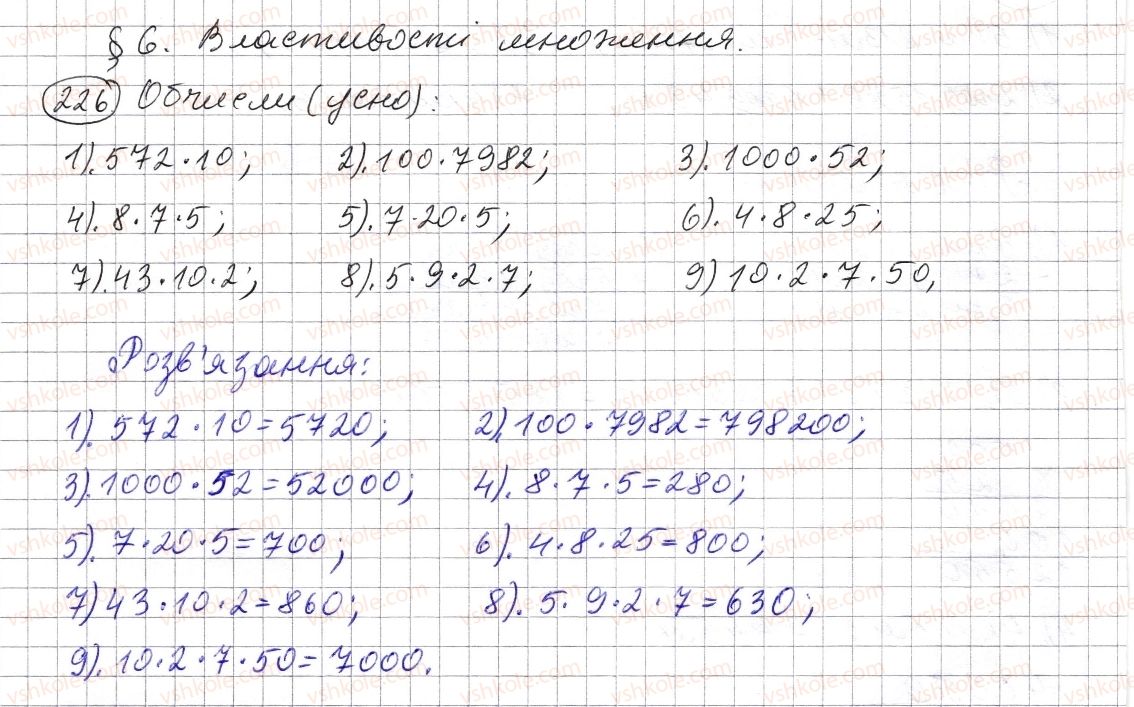 § 6. Властивості множення.
226) Обчисли (усно):
1). 572·10; 2). 100·7982; 3). 1000·52;
4). 8·7·5; 5). 7·20·5; 6). 4·8·25;
7). 43·10·2; 8). 5·9·2·7; 9) 10·2·7·50,
Розв'язання:
1). 572·10=5720; 2). 100·7982=798200;
3). 1000·52=52000; 4). 8·7·5=280;
5). 7·20·5=700; 6). 4·8·25=800;
7) 43·10·2=860; 8). 5·9·2·7=630;
9). 10·2·7·50=7000.
vshkole.com